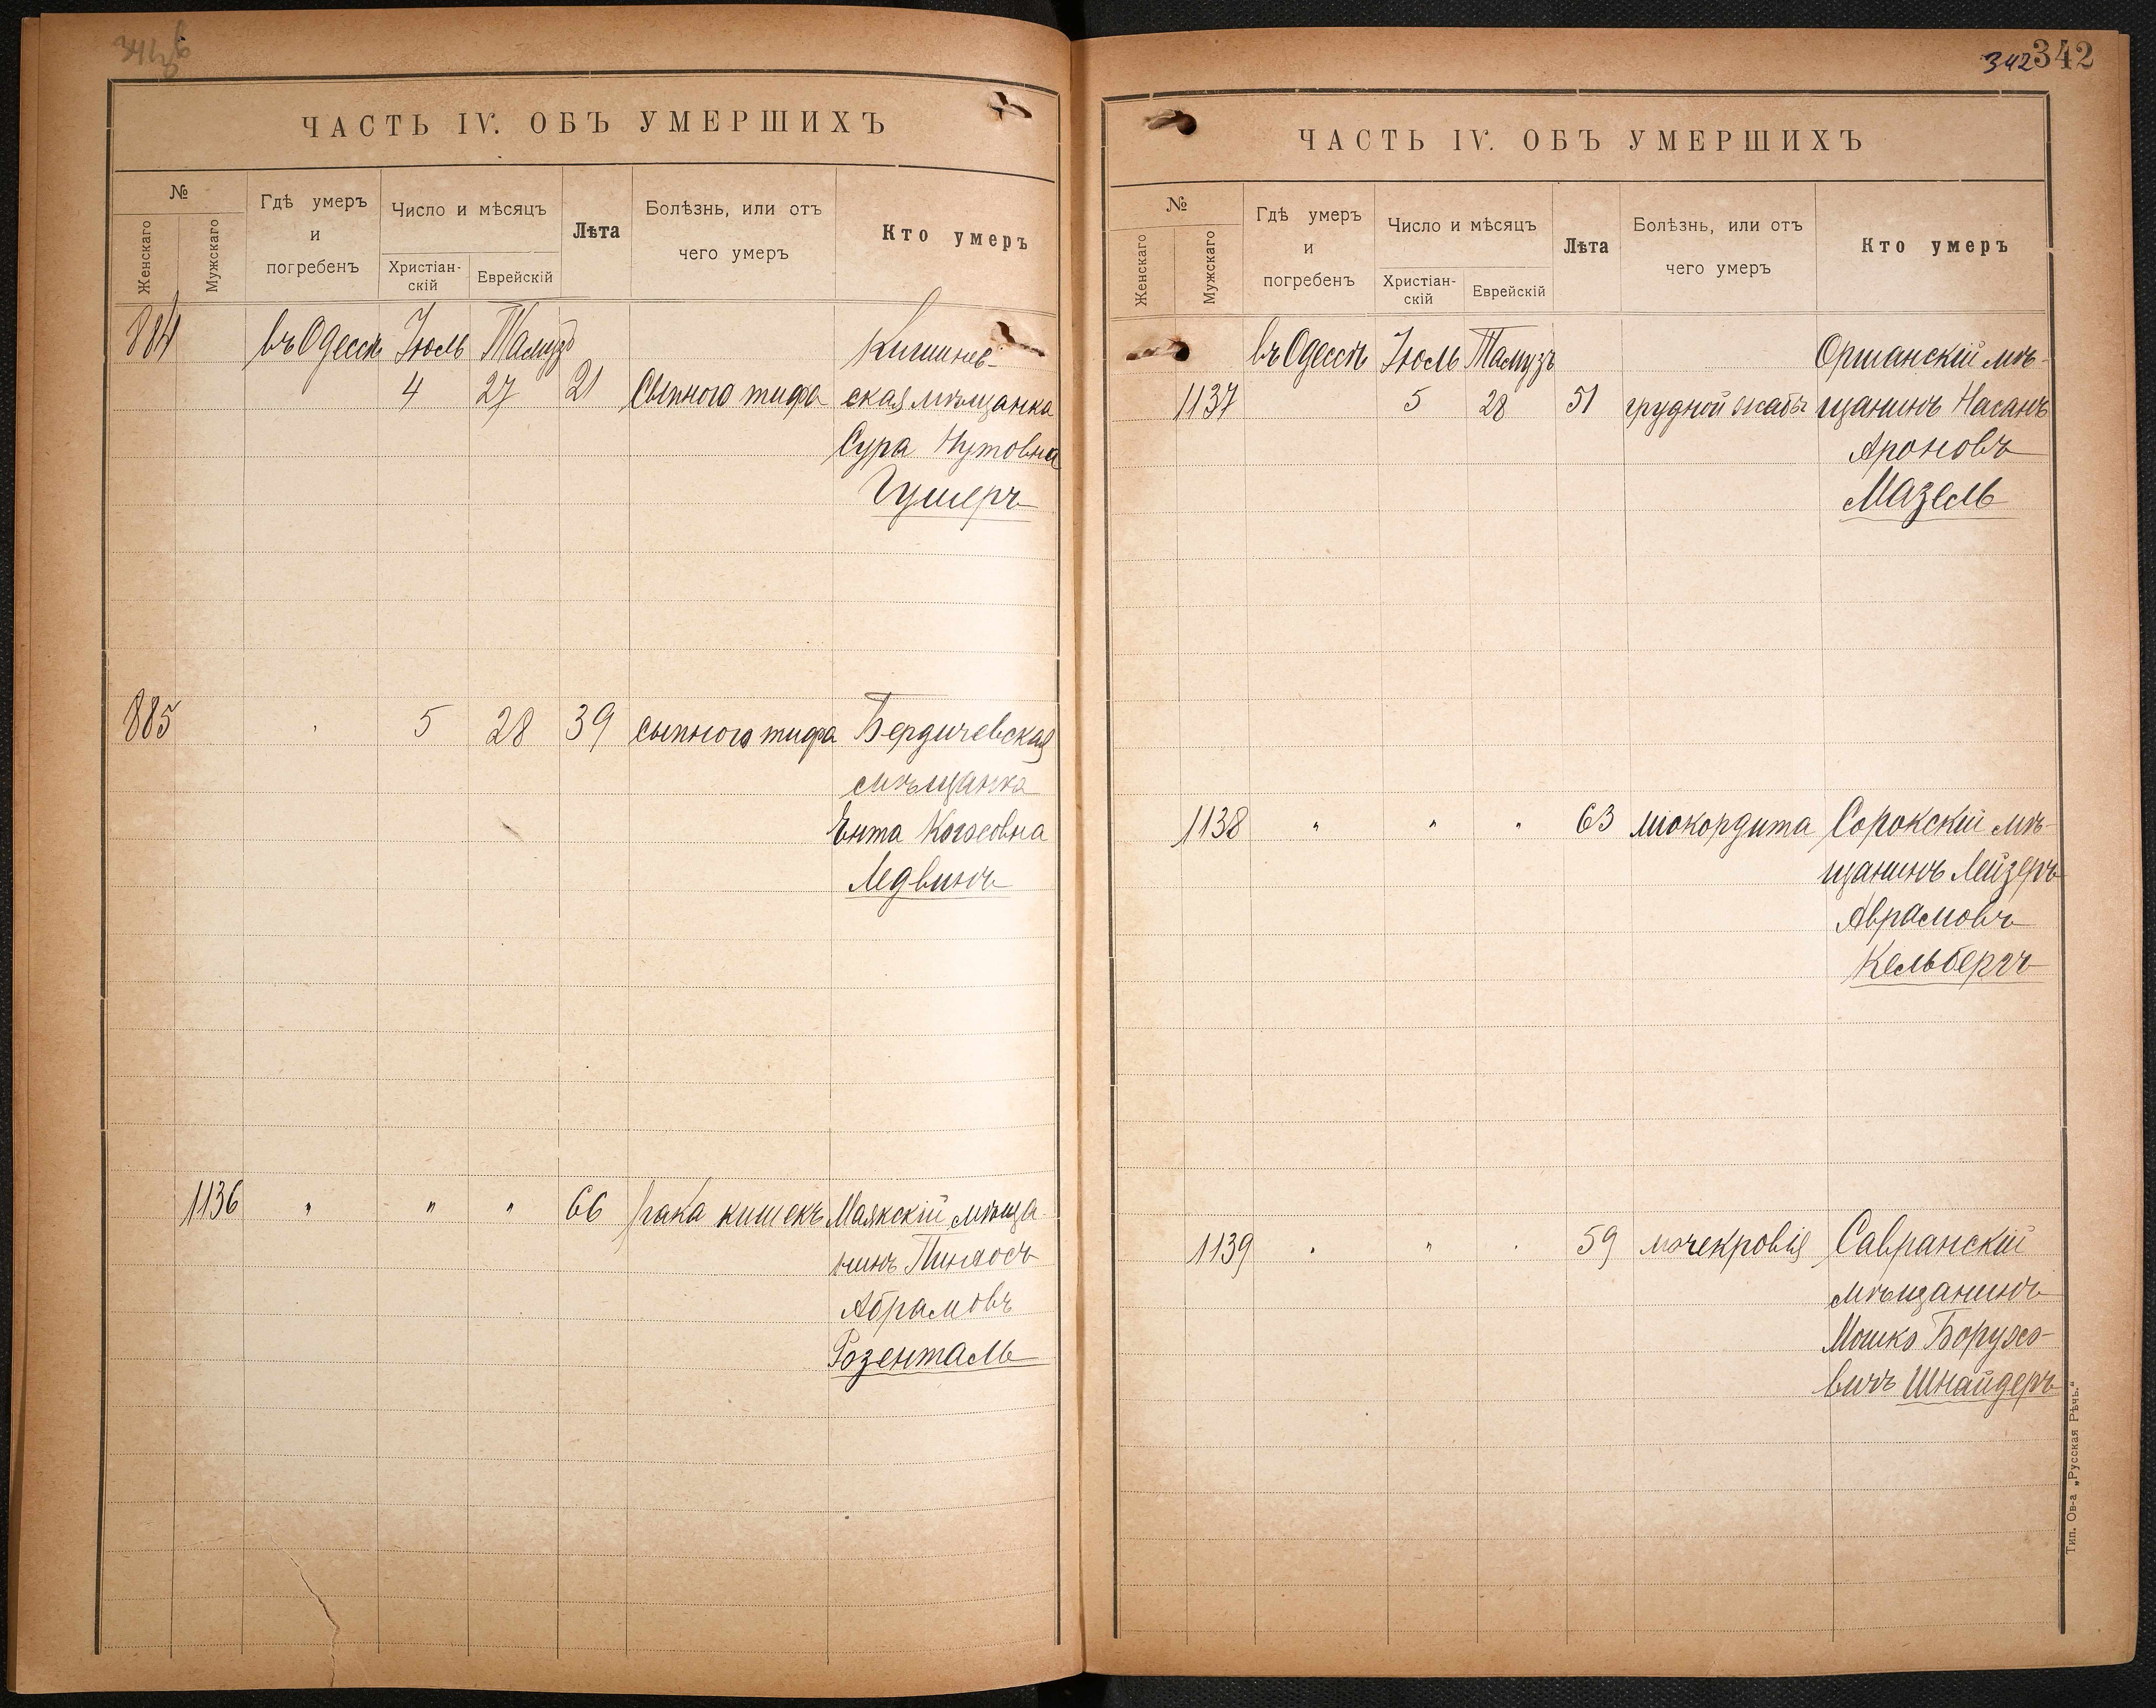 ЧАСТЬ IV. ОБЪ УМЕРШИХЪ
№
Женскаго
Мужскаго
Гдѣ умеръ
и
погребенъ
Число и мѣсяцъ
Христіан-
скій
Еврейскій
Лѣта
Болѣзнь, или отъ
чего умеръ
Кто умеръ
884 въ Одессѣ Іюль Тамузъ Кишинев-
4 27 21 Сыпного тифа ская мѣщанка
Сура Нутовна
Гушеръ
885 5 28 39 сыпного тифа Бердичевская
мѣщанка
Ента
Ледвинъ
1136 " " " 66 рака кишекъ Маякскій мѣща-
нинъ Пинхосъ
Абрамовъ
Розенталь
342 342
ЧАСТЬ IV. ОБЪ УМЕРШИХЪ
№
Женскаго
Мужскаго
Гдѣ умеръ
и
погребенъ
Число и мѣсяцъ
Христіан-
скій
Еврейскій
Лѣта
Болѣзнь, или отъ
чего умеръ
Кто умеръ
въ Одессѣ Іюль Тамузъ Оршанскій мѣ-
1137 5 28 51 грудной жабы щанинъ Насанъ
Ароновъ
Мазель
1138 " " " 63 міокордита Сорокскій мѣ-
щанинъ Лейзеръ
Аврамовъ
Кельбергъ
1139 " " " 59 мочекровія Савранскій
мѣщанинъ
Мошко Борухо-
вичъ Шнайдеръ
Тип. Ов-а „Русская Рѣчь."